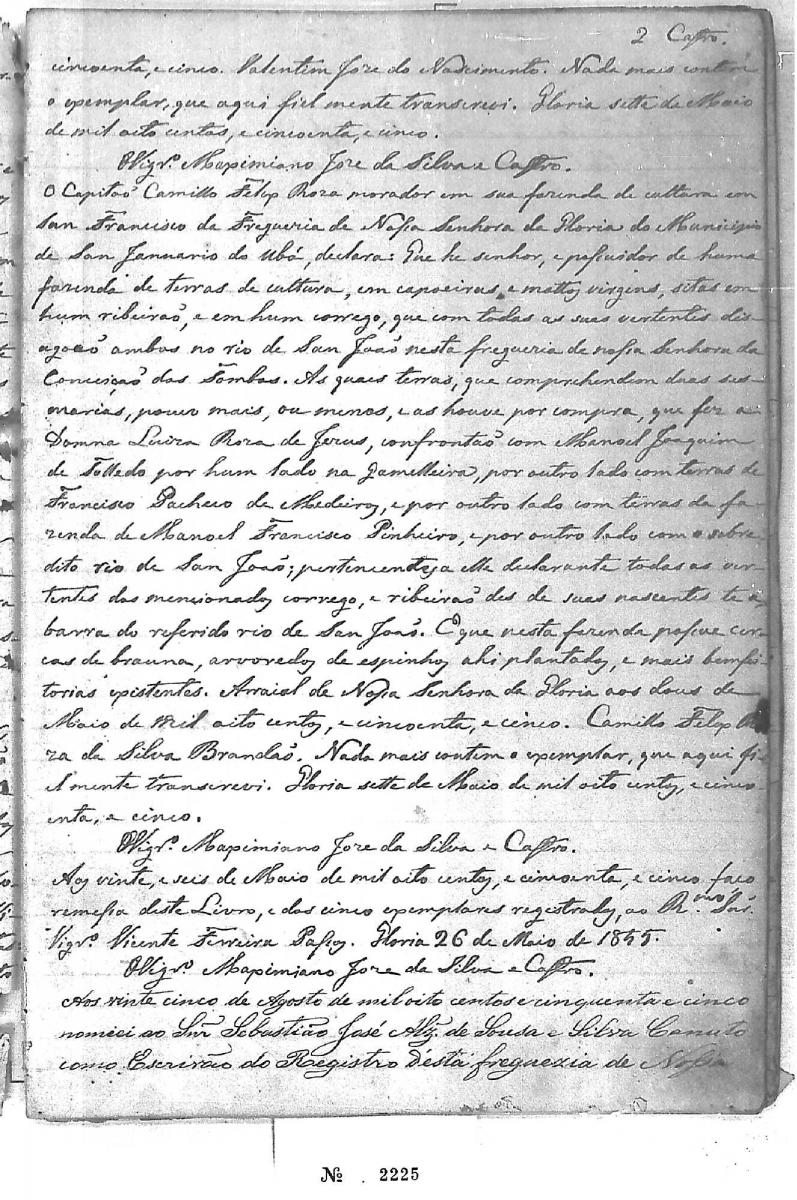 2 Castro.
cincoenta, e cinco. Valentim Jore do Nascimento. Nada mais contem
o exemplar, que aqui fielmente transcrevi. Gloria sette de Maio
de mil oito centos, e cincoenta, e cinco.
O Vigr.º Maximiano Jore da Silva e Castro.
O Capitaõ Camillo Felix Roza morador em sua fazenda de cultura em
San Francisco da Fregueria de Nossa Senhora da Gloria do Municipio
de San Januario do Ubá, declara: Que he senhor, e possuidor de huma
fazenda de terras de cultura, em capoeiras, e mattos virgens, sitas em
hum ribeiraõ, e em hum corrego, que com todas as suas vertentes dis-
agoaõ ambos no rio de San Joaõ nesta fregueria de nossa Senhora da
Conceiçaõ dos Tombos. As quaes terras, que comprehendem duas ses-
marias, pouco mais, ou menos, e as houve por compra, que fez a
Domna Luiza Roza de Jerus, confrontaõ com Manoel Joaquim
de Tolledo por hum lado na Gamelleira, por outro lado com terras de
Francisco Pacheco de Medeiros, e por outro lado com terras da fa-
zenda de Manoel Francisco Pinheiro, e por outro lado com o sobre
dito rio de San Joaõ; pertencendo a elle declarante todas as ver-
tentes dos mencionados corrego, e ribeiraõ des de suas nascentes te a
barra do referido rio de San Joaõ. E que nesta fazenda possue cer-
cas de brauna, arvoredos de espinhos ahi plantados, e mais bemfei-
torias existentes. Arraial de Nossa Senhora da Gloria aos dous de
Maio de mil oito centos, e cincoenta, e cinco. Camillo Felix Ro-
za da Silva Brandaõ. Nada mais contem o exemplar, que aqui fi-
elmente transcrevi. Gloria sette de Maio de mil oito centos, e cinco-
enta, e cinco.
O Vigr.º Maximiano Jore da Silva e Castro.
Aos vinte, e seis de Maio de mil oito centos, e cincoenta, e cinco faço
remessa deste Livro, e dos cinco exemplares registrados, ao R.mo Snr.
Vigr.º Vicente Ferreira Passos. Gloria 26 de Maio de 1855.
O Vigr.º Maximiano Jore da Silva e Castro.
Aos vinte cinco de Agosto de mil oito centos e cinquenta e cinco
nomeei ao Snr Sebastião José Alz. de Sousa e Silva Canuto
como Escrivão do Registro desta freguezia de Nossa
Nº 2225